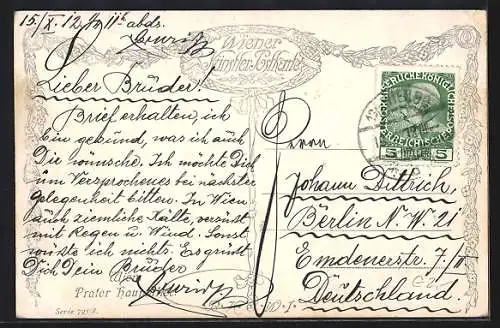 15./X. 12. ½ 11h abds.
Wiener
Künstler-Postkarte
Lieber Brüder!
Brief erhalten, ich
bin gesund, was ich auch
Dir wünsche. Ich möchte Dich
um Versprochenes bei nächster
Gelegenheit bitten. In Wien
auch ziemliche Kälte, vermischt
mit Regen u. Wind. Sonst
wüsste ich nichts. Es grüsst
Dich Dein Brüder
Wien
Prater Hauptallee.
Serie
Herrn
Johann Dittrich,
Berlin N. W. 21
Emdenerstr. 7/II
Deutschland.
5 HELLER 5